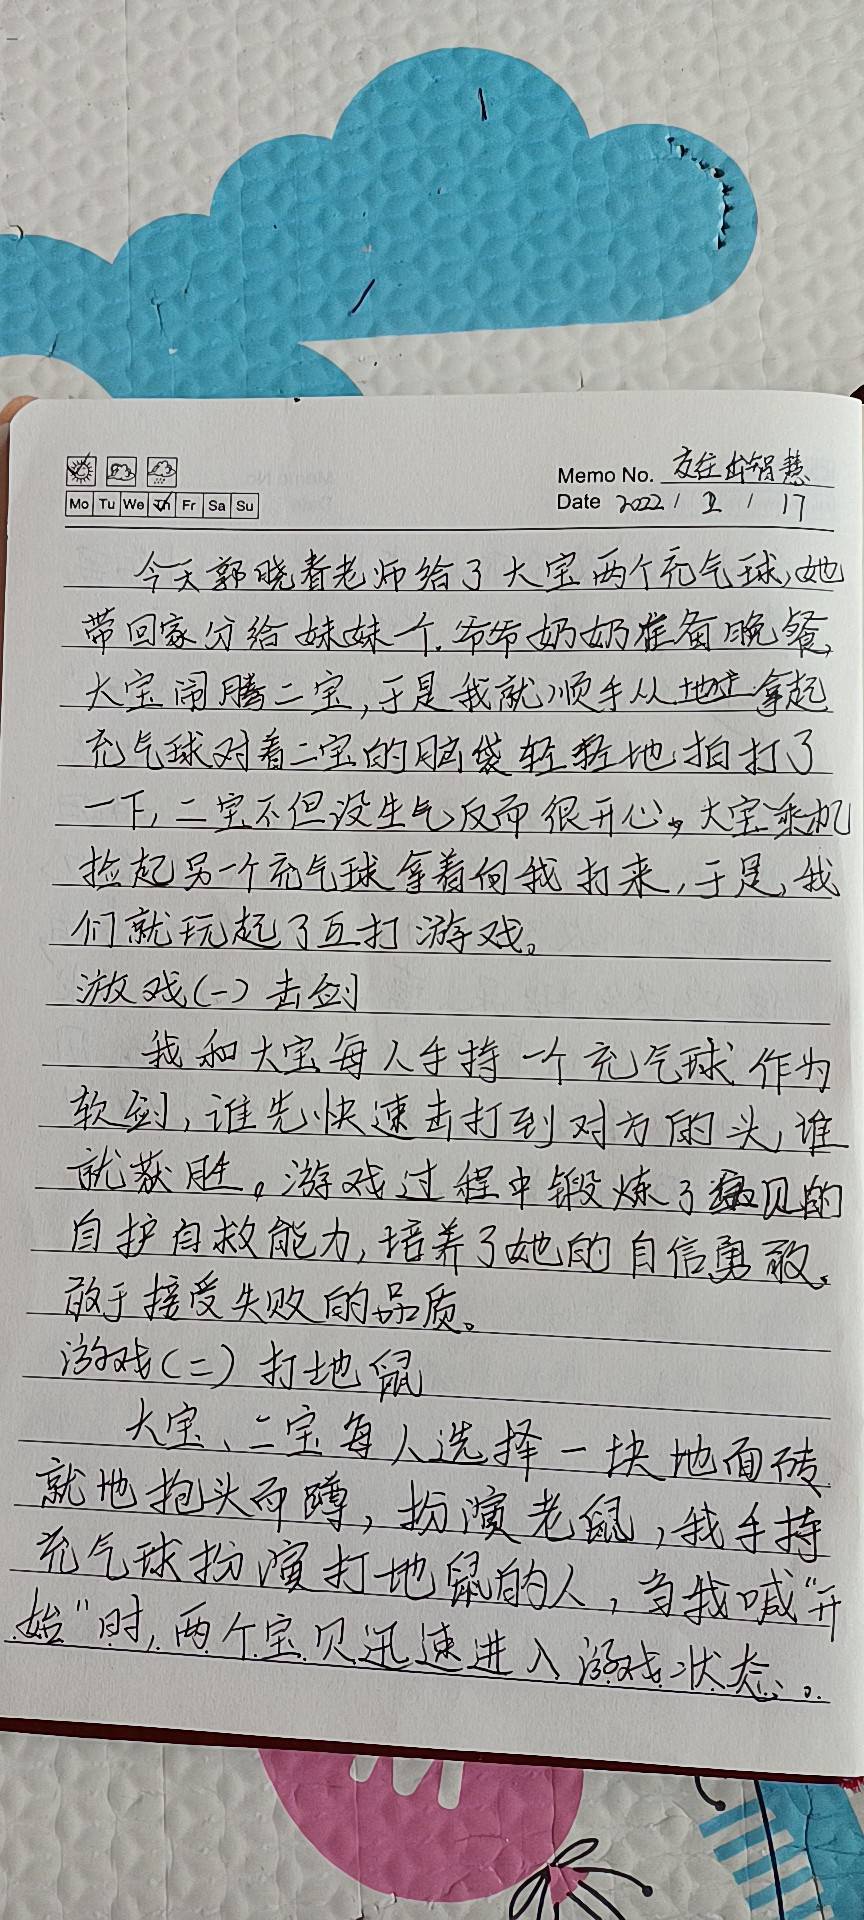 Memo No. 交往出智慧
Mo Tu We Th Fr Sa Su
Date 2022 / 2 / 17
今天郭晓春老师给了大宝两个充气球,她
带回家分给妹妹一个.爷爷奶奶准备晚餐,
大宝闹腾二宝,于是我就顺手从地上拿起
充气球对着二宝的脑袋轻轻地拍打了
一下,二宝不但没生气反而很开心。大宝乘机
捡起另一个充气球拿着向我打来,于是,我
们就玩起了互打游戏。
游戏(一)击剑
我和大宝每人手持一个充气球作为
软剑,谁先快速击打到对方的头,谁
就获胜。游戏过程中锻炼了贝的
自护自救能力,培养了她的自信勇敢、
敢于接受失败的品质。
游戏(二)打地鼠
大宝、二宝每人选择一块地面砖
就地抱头而蹲,扮演老鼠,我手持
充气球扮演打地鼠的人,当我喊"开
始"时,两个宝贝迅速进入游戏状态。